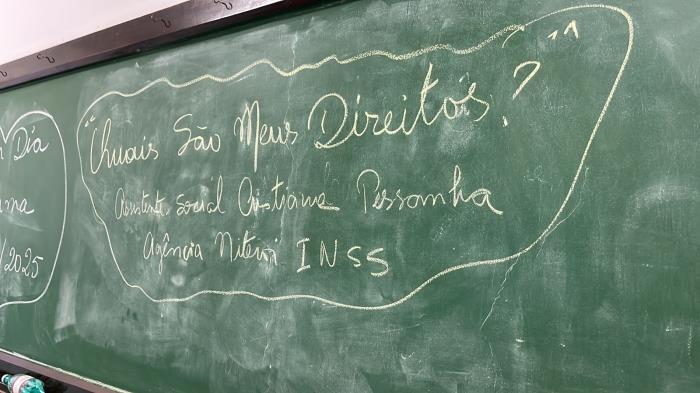 "Quais São Meus Direitos? "
Assistente Social Cristiane Pessanha
Agência Niterói INSS
Dia
/2025